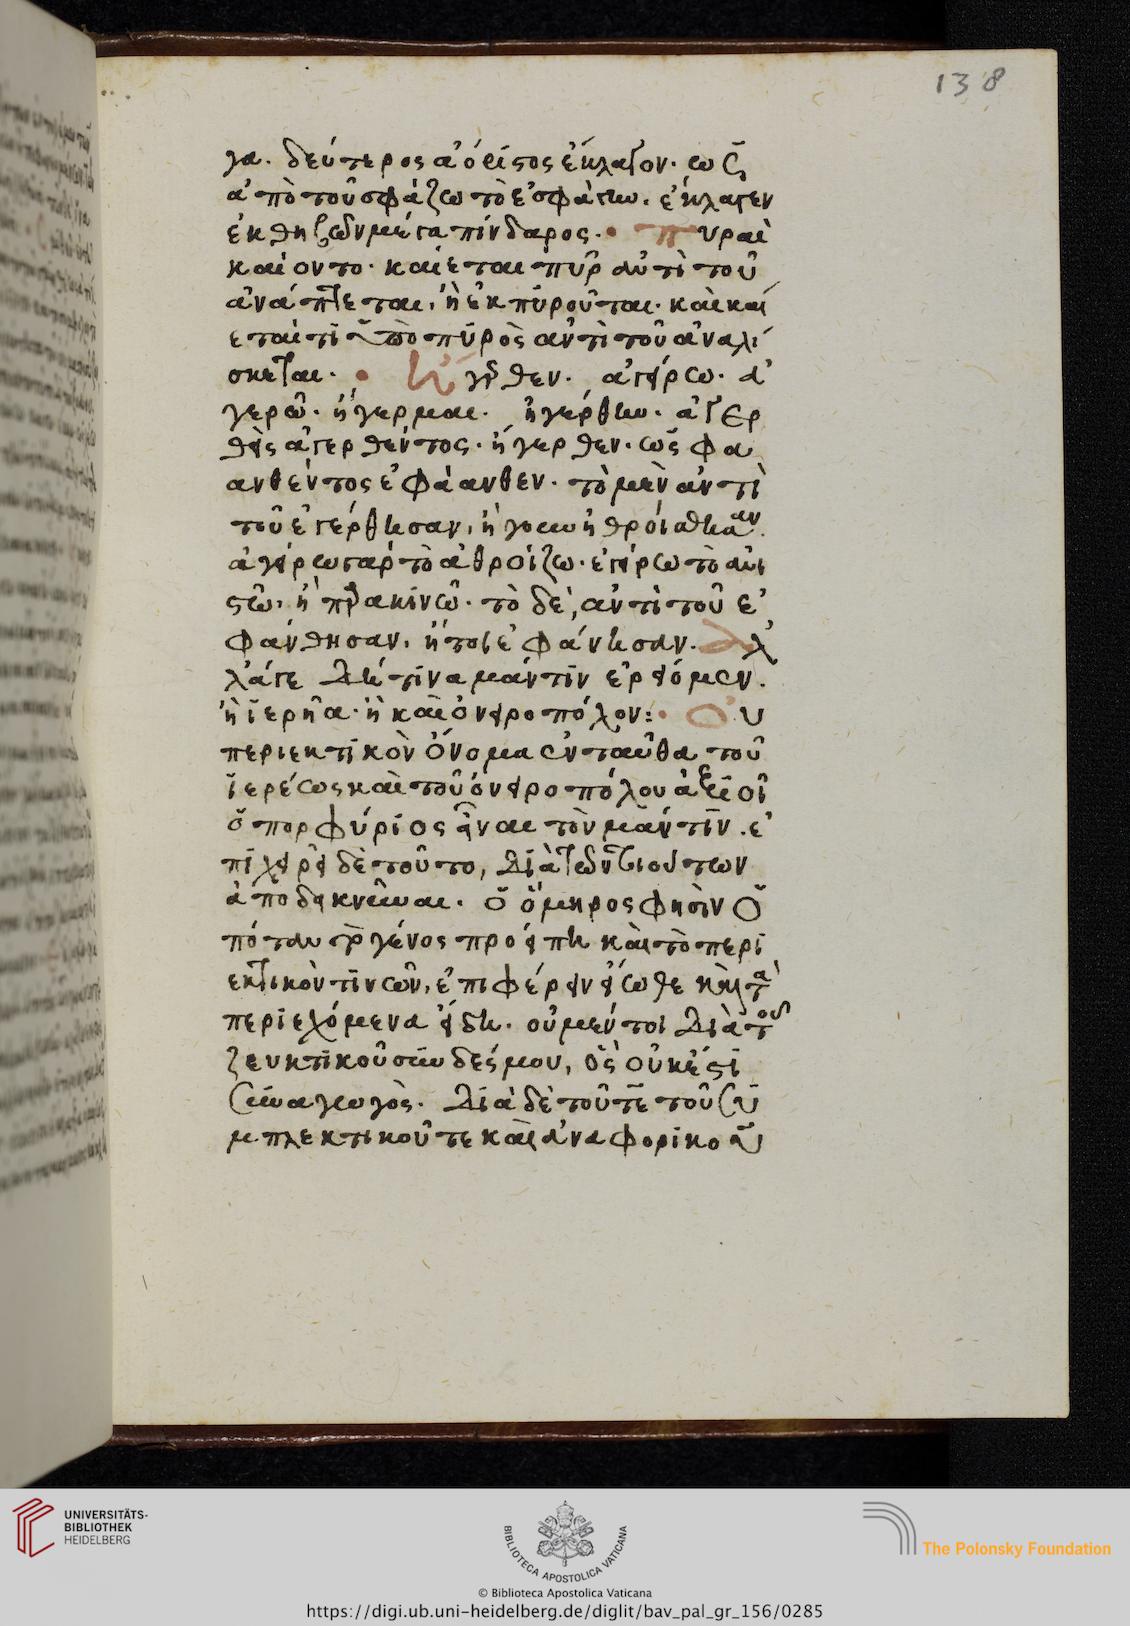 138
γα. δεύτερος ἀόριστος ἔκλαγον. ὡς
ἀπὸ τοῦ σφάζω τὸ ἐσφάγην. ἔκλαγεν
ἐκ θηζῶν μέγα πίνδαρος. πυραὶ
καίοντο. καίεται πῦρ ἀντὶ τοῦ
ἀνάπτεται, ἢ ἐκπυροῦται. καὶ καί
εταί τι ὑπὸ πυρὸς ἀντὶ τοῦ ἀναλί
σκεται. ἤγερθεν. ἀγείρω. ἀ
γερῶ. ἤγερμαι. ἠγέρθην. ἀγερ
θεὶς ἀγερθέντος. ἤγερθεν. ὡς φα
ανθέντος ἐφάανθεν. τὸ μὲν ἀντὶ
τοῦ ἐγέρθησαν, ἤγουν ἠθροίσθησαν.
ἀγείρω γὰρ τὸ ἀθροίζω. ἐγείρω τὸ ἀνι
στῶ, ἢ παρακινῶ. τὸ δὲ, ἀντὶ τοῦ ἐ
φάνθησαν, ἤτοι ἐφάνησαν. ἀλ
λάγε δή τινα μάντιν ἐρείομεν.
ἢ ἱερῆα. ἢ καὶ ὀνειροπόλον: οὐ
περιεκτικὸν ὄνομα ἐνταῦθα τοῦ
ἱερέως καὶ τοῦ ὀνειροπόλου ἀξιοῖ
ὁ πορφύριος εἶναι τὸν μάντιν. ἐ
πιχειρεῖ δὲ τοῦτο, διὰ
ἀποδεικνύναι. ὁ ὅμηρος φησὶν ὁ
πόταν γένος προείπη καὶ τὸ περι
εκτικὸν τινῶν, ἐπιφέρειν εἴωθε καὶ τὰ
περιεχόμενα εἴδη. οὐ μέντοι διὰ τοῦ
ζευκτικοῦ συνδέσμου, ὃς οὐκ ἔστι
συναγωγὸς. διὰ δὲ τοῦ τε τοῦ συ
μπλεκτικοῦ τε καὶ ἀναφορικοῦ
UNIVERSITÄTS-
BIBLIOTHEK
HEIDELBERG
BIBLIOTECA APOSTOLICA VATICANA
The Polonsky Foundation
© Biblioteca Apostolica Vaticana
https://digi.ub.uni-heidelberg.de/diglit/bav_pal_gr_156/0285